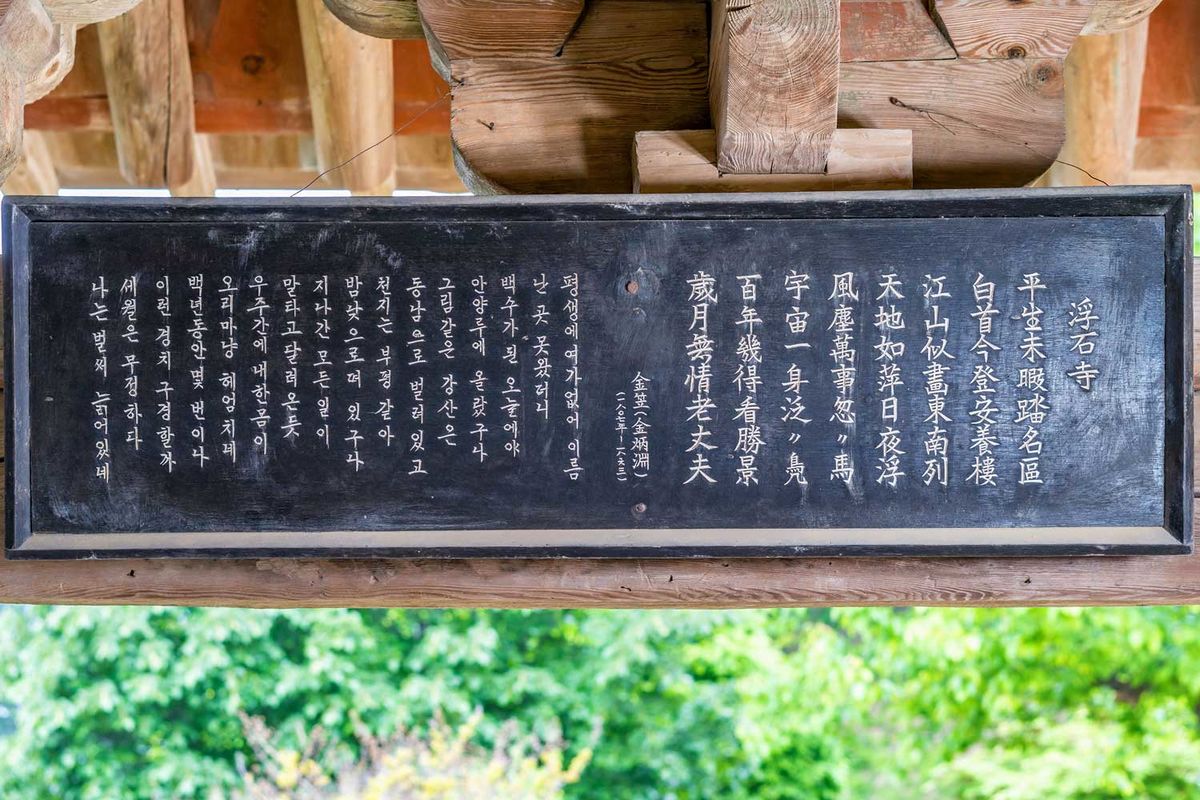 浮石寺
平生未暇踏名區
白首今登安養樓
江山似畵東南列
天地如萍日夜浮
風塵萬事忽〃馬
宇宙一身泛〃鳧
百年幾得看勝景
歲月無情老丈夫
金笠(金炳淵)
(一八〇七年~一八六三)
평생에 여가 없어 이름
난 곳 못왔더니
백수가 된 오늘에야
안양루에 올랐구나
그림같은 강산은
동남으로 벌려있고
천지는 부평같아
밤낮으로 떠 있구나
지나간 모든일이
말타고 달려온듯
우주간에 내 한몸이
오리마냥 헤엄치네
백년동안 몇 번이나
이런 경치 구경할까
세월은 무정하다
나는 벌써 늙어있네